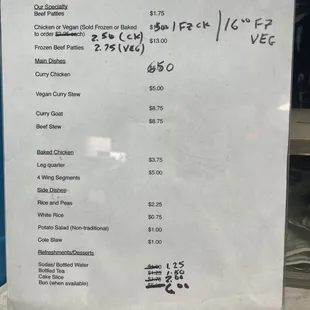 Our Specialty
Beef Patties $1.75
Chicken or Vegan (Sold Frozen or Baked FZ CK / 16.00 FZ
to order each) 2.50 (CK) $13.00 VEG
Frozen Beef Patties 2.75 (VEG)
Main Dishes
Curry Chicken
Vegan Curry Stew $5.00
Curry Goat $6.75
Beef Stew $6.75
Baked Chicken
Leg quarter $3.75
4 Wing Segments $5.00
Side Dishes
Rice and Peas $2.25
White Rice $0.75
Potato Salad (Non-traditional) $1.00
Cole Slaw $1.00
Refreshments/Desserts
Sodas/ Bottled Water 1.25
Bottled Tea 1.50
Cake Slice 2.00
Bun (when available) 6.00